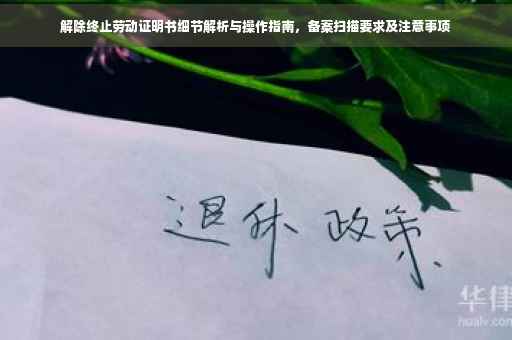 解除终止劳动证明书细节解析与操作指南，备案扫描要求及注意事项
退休 政策
华律
hualv.com